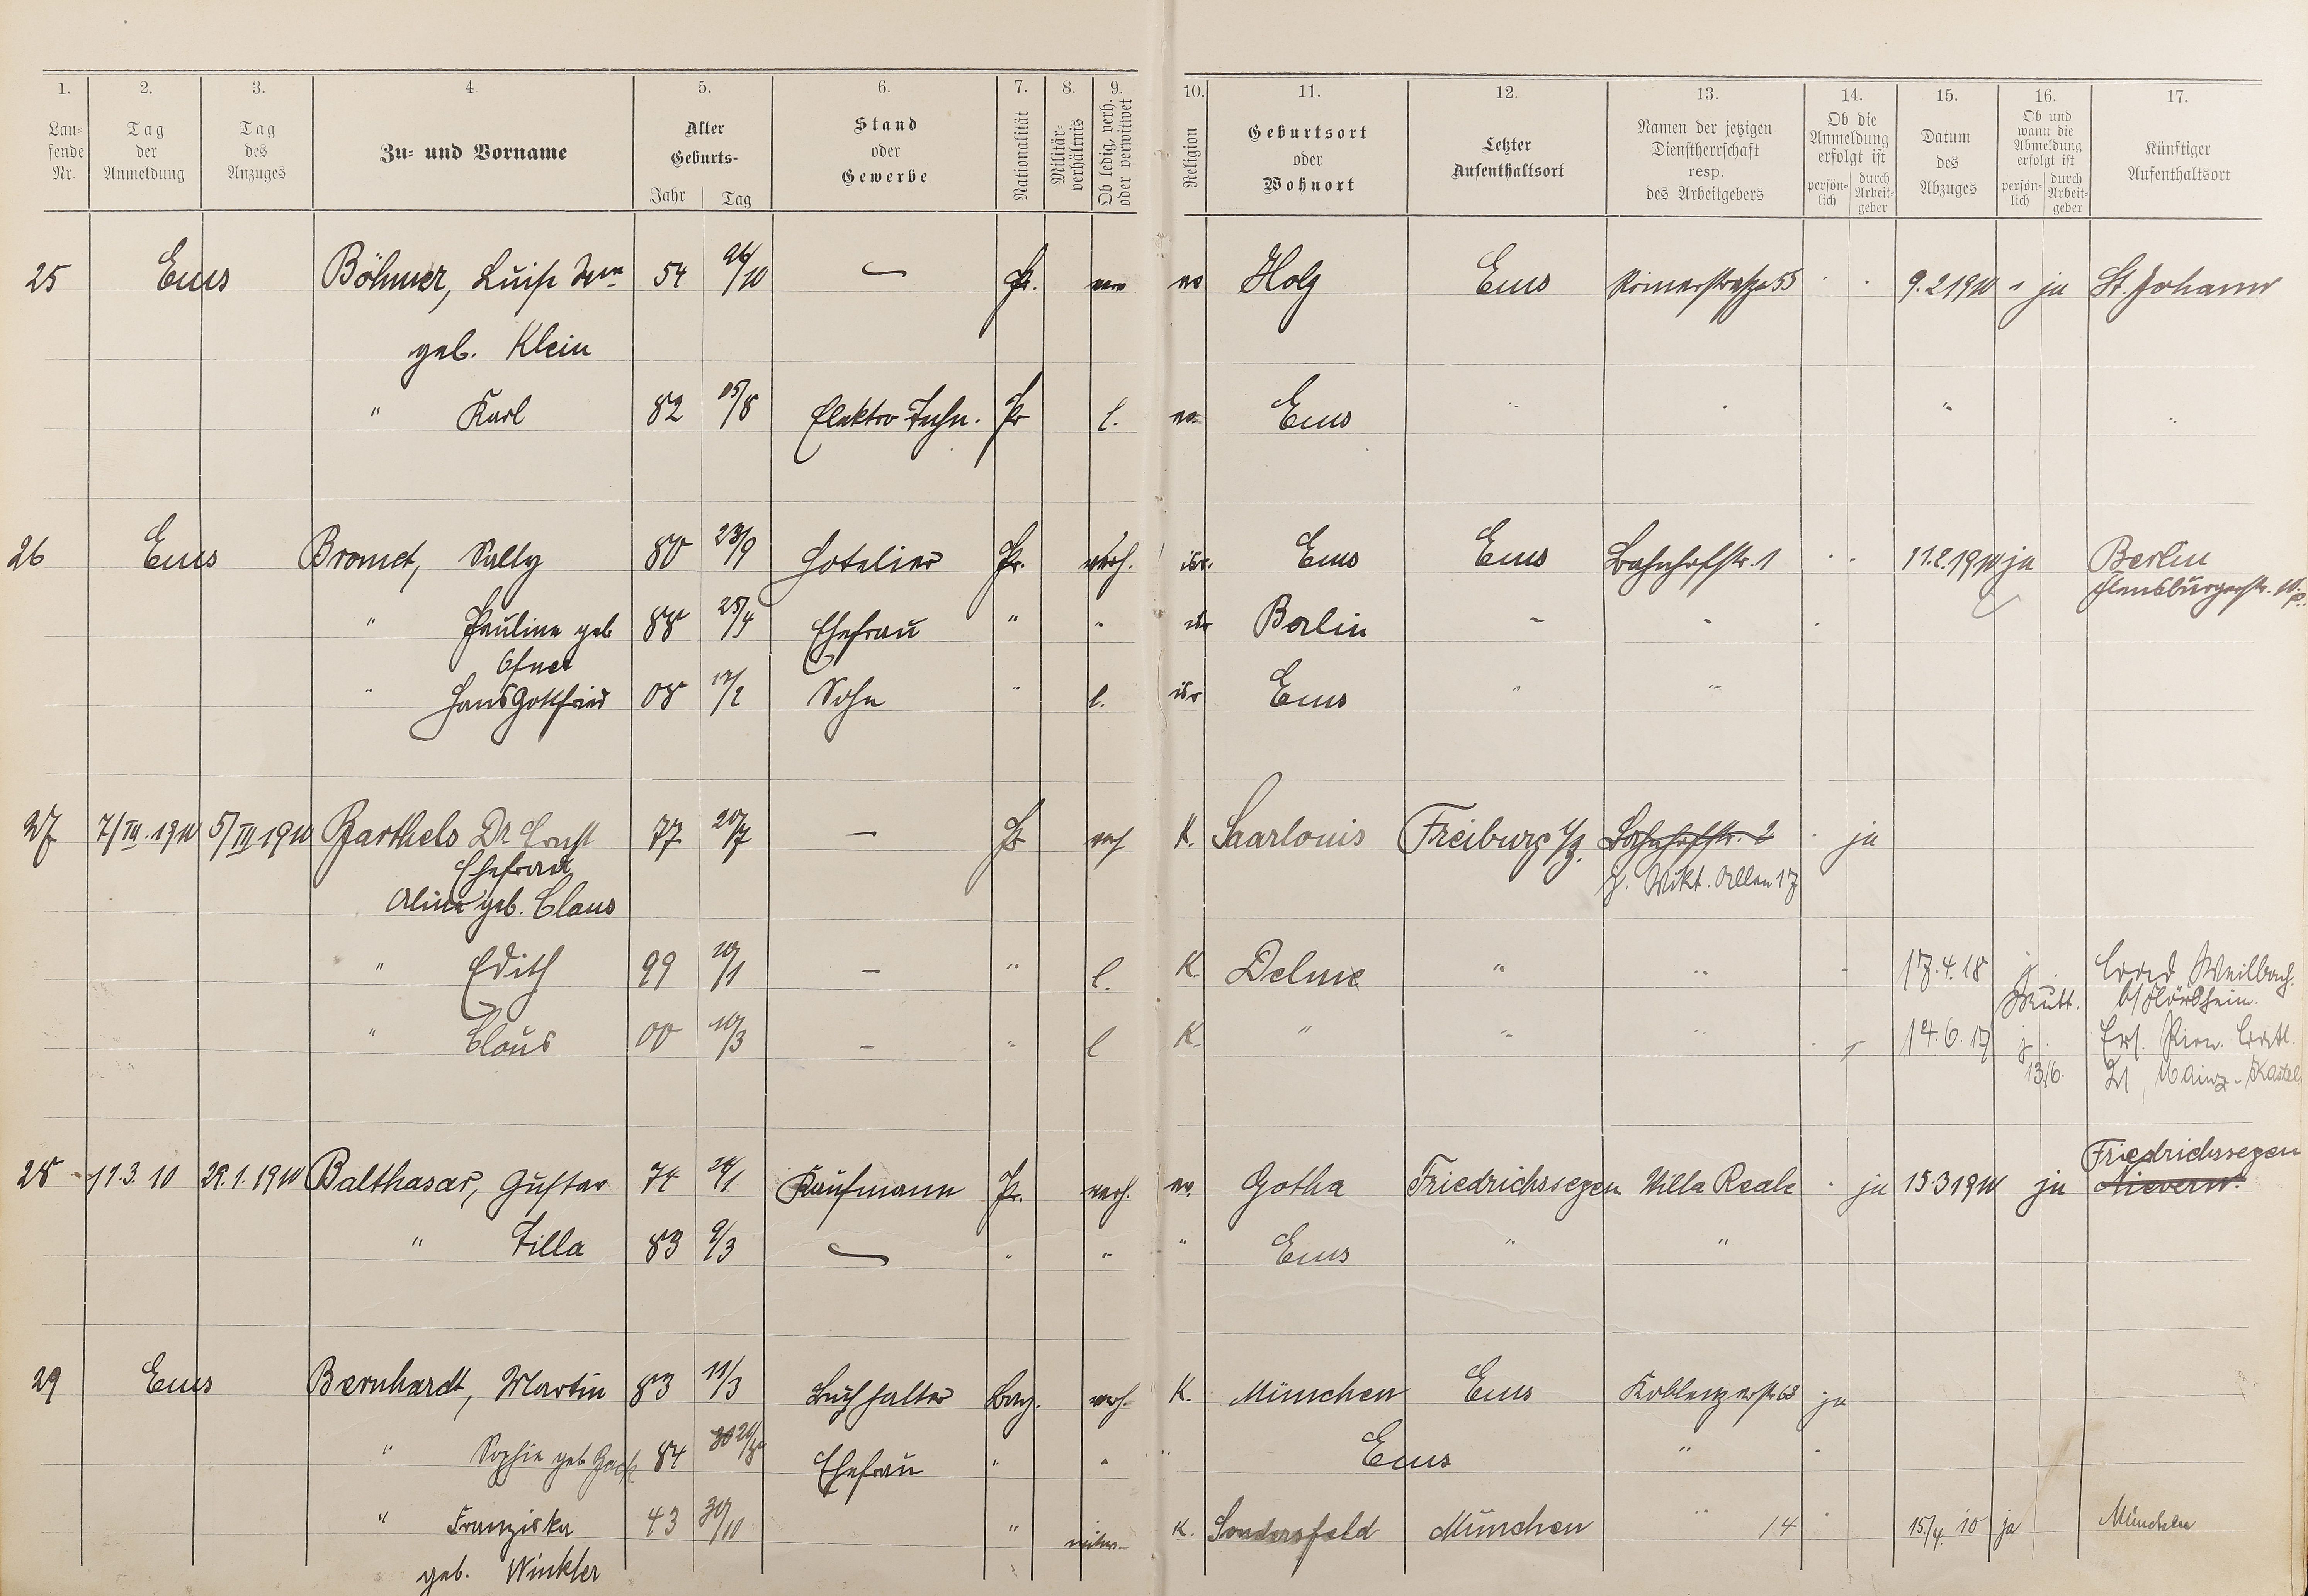 1. 2. 3. 4. 5. 6. 7. 8. 9. 10. 11. 12. 13. 14. 15. 16. 17.
Lau-
fende
Nr.
Tag
der
Anmeldung
Tag
des
Anzuges
Zu- und Vorname
Alter
Geburts-
Jahr Tag
Stand
oder
Gewerbe
Nationalität
Militär-
verhältnis
Ob ledig, verh.
oder verwitwet
Religion
Geburtsort
oder
Wohnort
Letzter
Aufenthaltsort
Namen der jetzigen
Dienstherrschaft
resp.
des Arbeitgebers
Ob die
Anmeldung
erfolgt ist
persön-
lich
durch
Arbeit-
geber
Datum
des
Abzuges
Ob und
wann die
Abmeldung
erfolgt ist
persön-
lich
durch
Arbeit-
geber
Künftiger
Aufenthaltsort
25 Ems Böhmer, Luise 54 26/10 — Pr. ev Holz Ems Römerstraße 55 9.2 1910 " ja St. Johann
geb. Klein
" Karl 82 15/8 Elektro Techn. Pr l. ev. Ems " " " "
26 Ems Bromet, Sally 80 23/9 Hotelier Pr. verh. isr. Ems Ems Bahnhofstr. 1 11.2.1910 ja Berlin
Flensburgerstr. 10
" Pauline geb 88 25/4 Ehefrau " " isr Berlin " "
" Hans Gottfried 08 12/2 Sohn " l. isr Ems " "
27 7/III.1910 5/III 1910 Barthels Dr Ernst 77 20/7 — Pr verh K. Saarlouis Freiburg i/B. Bahnhofstr. 2 ja
Ehefrau V. Vikt. Allee 17
Aline geb. Claus
" Edith 99 10/1 — " l. K. Delme " " 17.4.18 j. Bad Weilbach
Mutt. b/Flörsheim.
" Claus 00 10/3 — " l K. " " " 14.6.17 j. Ers. Pion. Batl.
13/6. 21 Mainz-Kastel
28 11.3.10 29.1.1910 Balthasar, Gustav 74 24/1 Kaufmann Pr. verh. ev. Gotha Friedrichssegen Villa Reale ja 15.3 1910 ja Friedrichssegen
Nievern
" Tilla 83 9/3 — " " " Ems " "
29 Ems Bernhardt, Martin 83 11/3 Buchhalter Bay. verh. K. München Ems Koblenzerstr. 63 ja
" Sophie geb 84 Ehefrau " " " Ems "
" Franziska 43 30/10 " K. Sondersfeld München " 14 15/4. 10 ja München
geb. Winkler